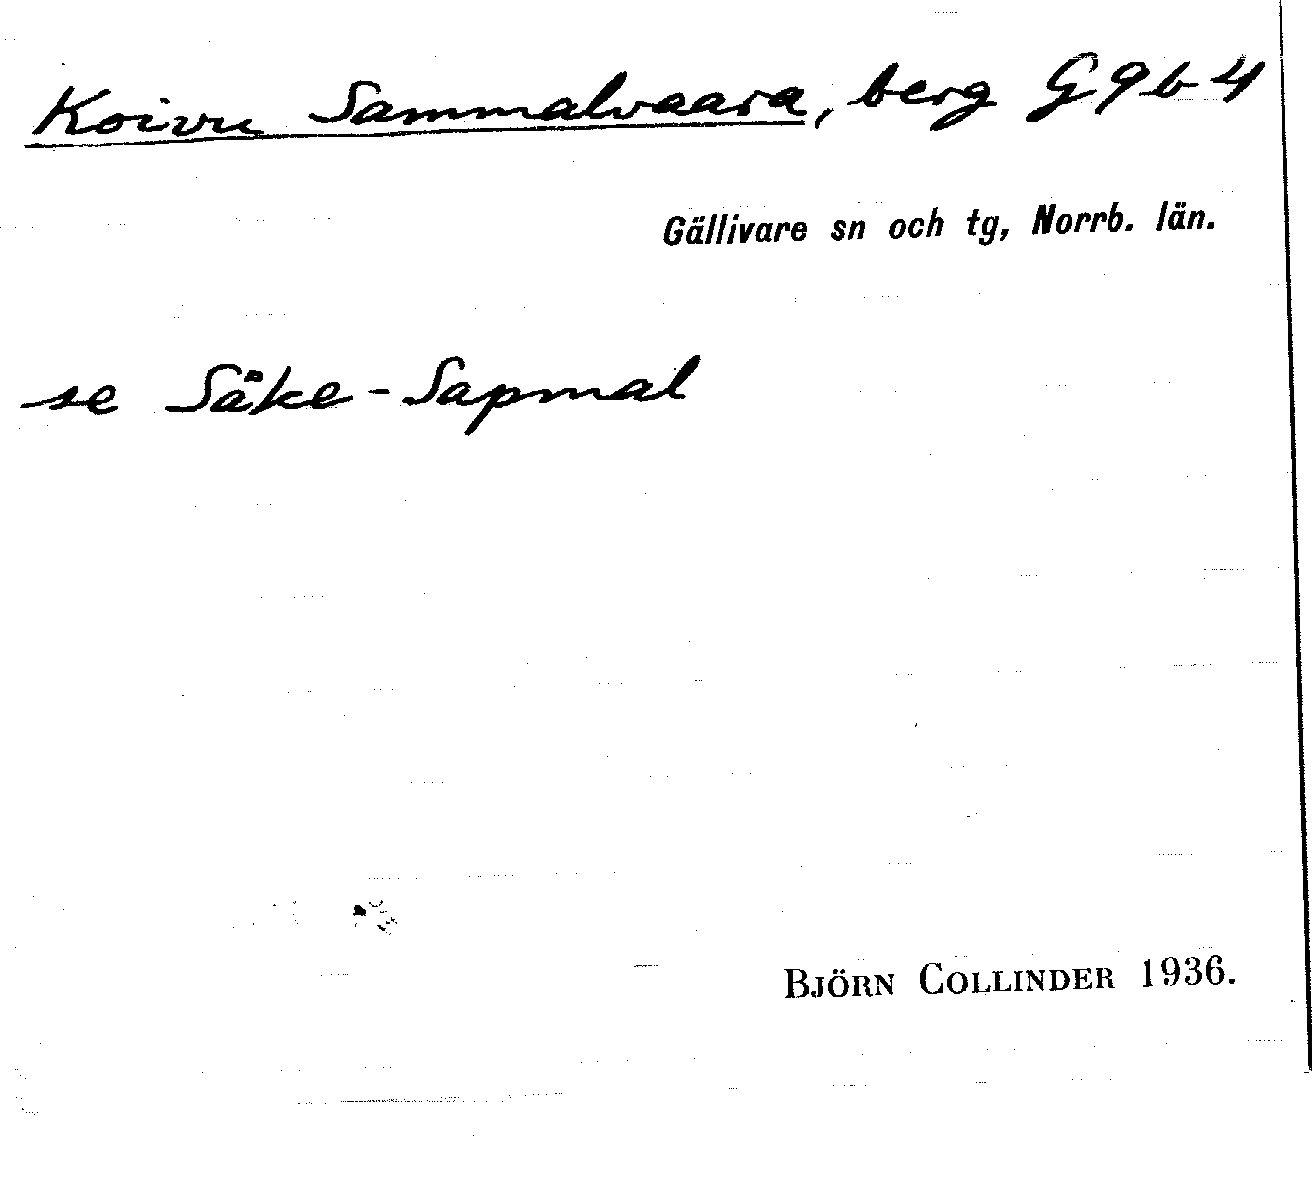 Koivu Sammalvaara, berg G 9 b 4
Gällivare sn och tg, Norrb. län.
se Säke-Sapmal
BJÖRN COLLINDER 1936.